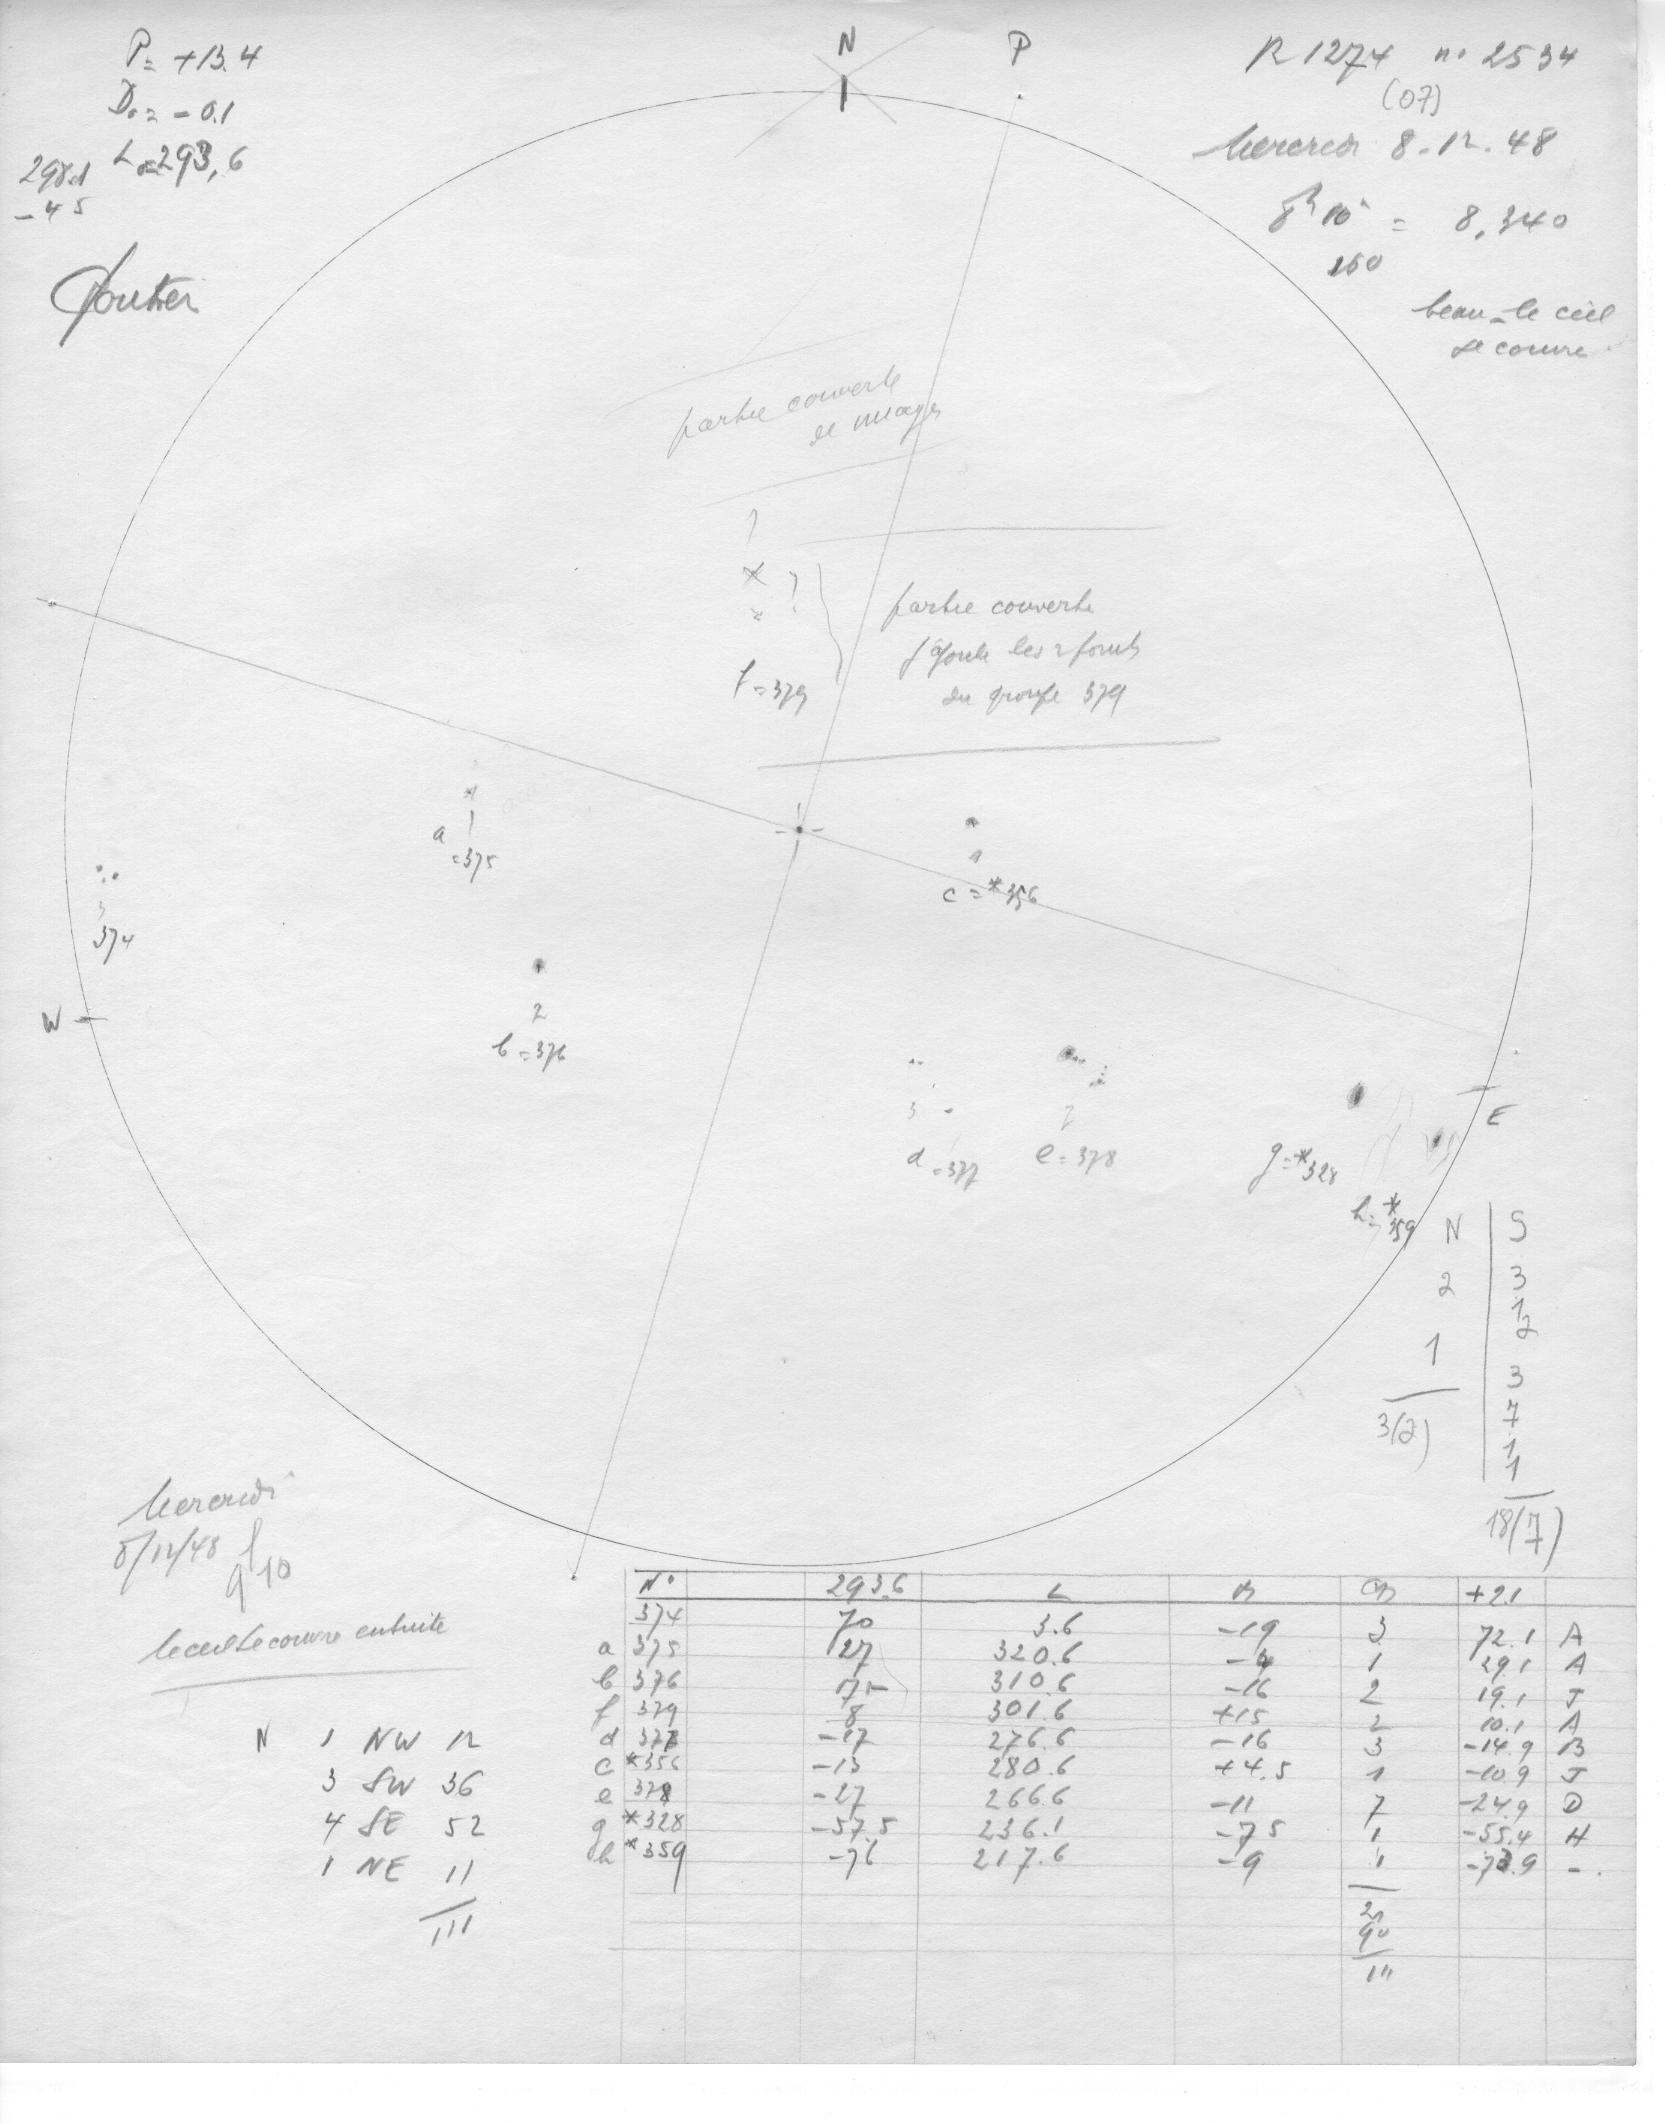 P = +13.4
D₀ = - 0.1
L₀ = 293,6
298.1
- 4 5
N
P
R 1274 n° 2534
(07)
Mercredi 8.12.48
8h 10 = 8,340
160
beau - le ciel
se couvre
partie couverte
de nuages
?
?
f = 379
partie couverte
j'ajoute les 2 points
du groupe 379
a 1
= 375
3
374
W
2
b = 376
1
c = *356
3
d = 377
7
e = 378
g = *328
h = *359
E
N | S
2 3
1
2
1 3
7
1
1
3(2)
18(7)
Mercredi
8/12/48
9 10
le ciel se couvre ensuite
N 1 NW 12
3 SW 36
4 SE 52
1 NE 11
111
N° 293.6 L B +2.1
374 70 3.6 -19 3 72.1 A
a 375 27 320.6 -4 1 29.1 A
b 376 17 310.6 -16 2 19.1 J
f 379 8 301.6 +15 2 10.1 A
d 377 -17 276.6 -16 3 -14.9 B
c *356 -13 280.6 +4.5 1 -10.9 J
e 378 -27 266.6 -11 7 -24.9 D
g *328 -57.5 236.1 -7.5 1 -55.4 H
h *359 -76 217.6 -9 1 -73.9 -.
21
90
111